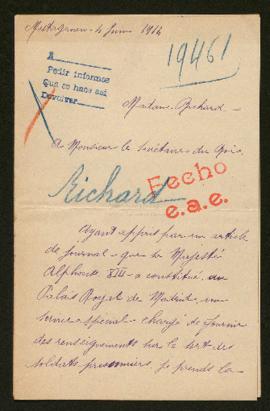 4 Juin 1916
19461
A
Pedir informes
Que se hace así
Devolver
Madame Richard.
A Monsieur le Secrétaire du Roi.
Richard
Fecho
e.a.e.
Ayant appris par un article
de journal que Sa Majesté
Alphonse XIII a constitué au
Palais Royal de Madrid un
service spécial chargé de fournir
des renseignements sur le sort des
soldats prisonniers je prends la